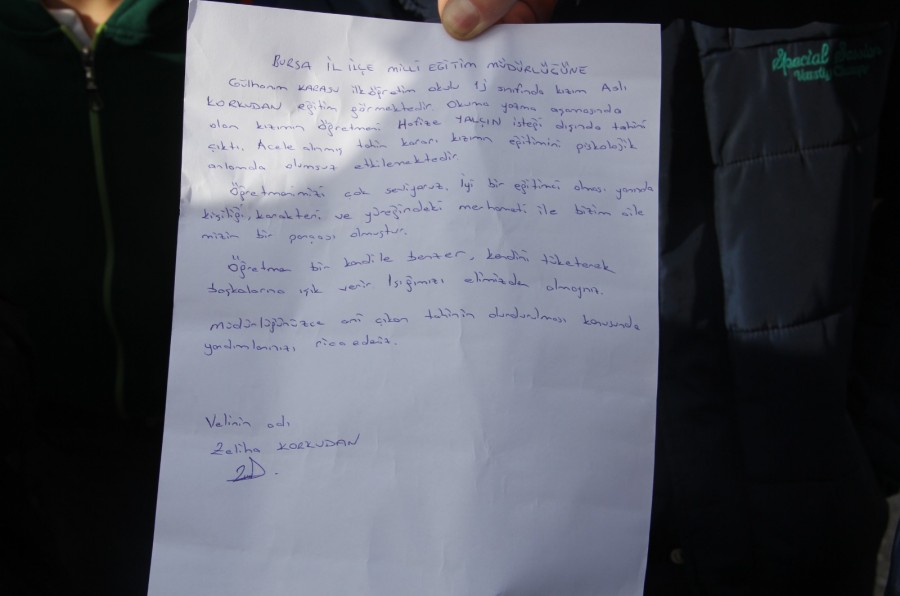 BURSA İL İLÇE MİLLİ EĞİTİM MÜDÜRLÜĞÜNE
Gülhanım KARASU ilköğretim okulu 1j sınıfında kızım Aslı
KORKUDAN eğitim görmektedir. Okuma yazma aşamasında
olan kızımın öğretmeni Hafize YALÇIN isteği dışında tahini
çıktı. Acele alınmış tahin kararı kızımın eğitimini psikolojik
anlamda olumsuz etkilemektedir.
Öğretmenimizi çok seviyoruz. İyi bir eğitimci olması yanında
kişiliği, karakteri ve yüreğindeki merhameti ile bizim aile
mizin bir parçası olmuştur.
Öğretmen bir kandile benzer, kendini tüketerek
başkalarına ışık verir Işığımızı elimizden almayınız.
Müdürlüğünüzce ani çıkan tahinin durdurulması konusunda
yardımlarınızı rica ederiz.
Velinin adı
Zeliha KORKUDAN
Special